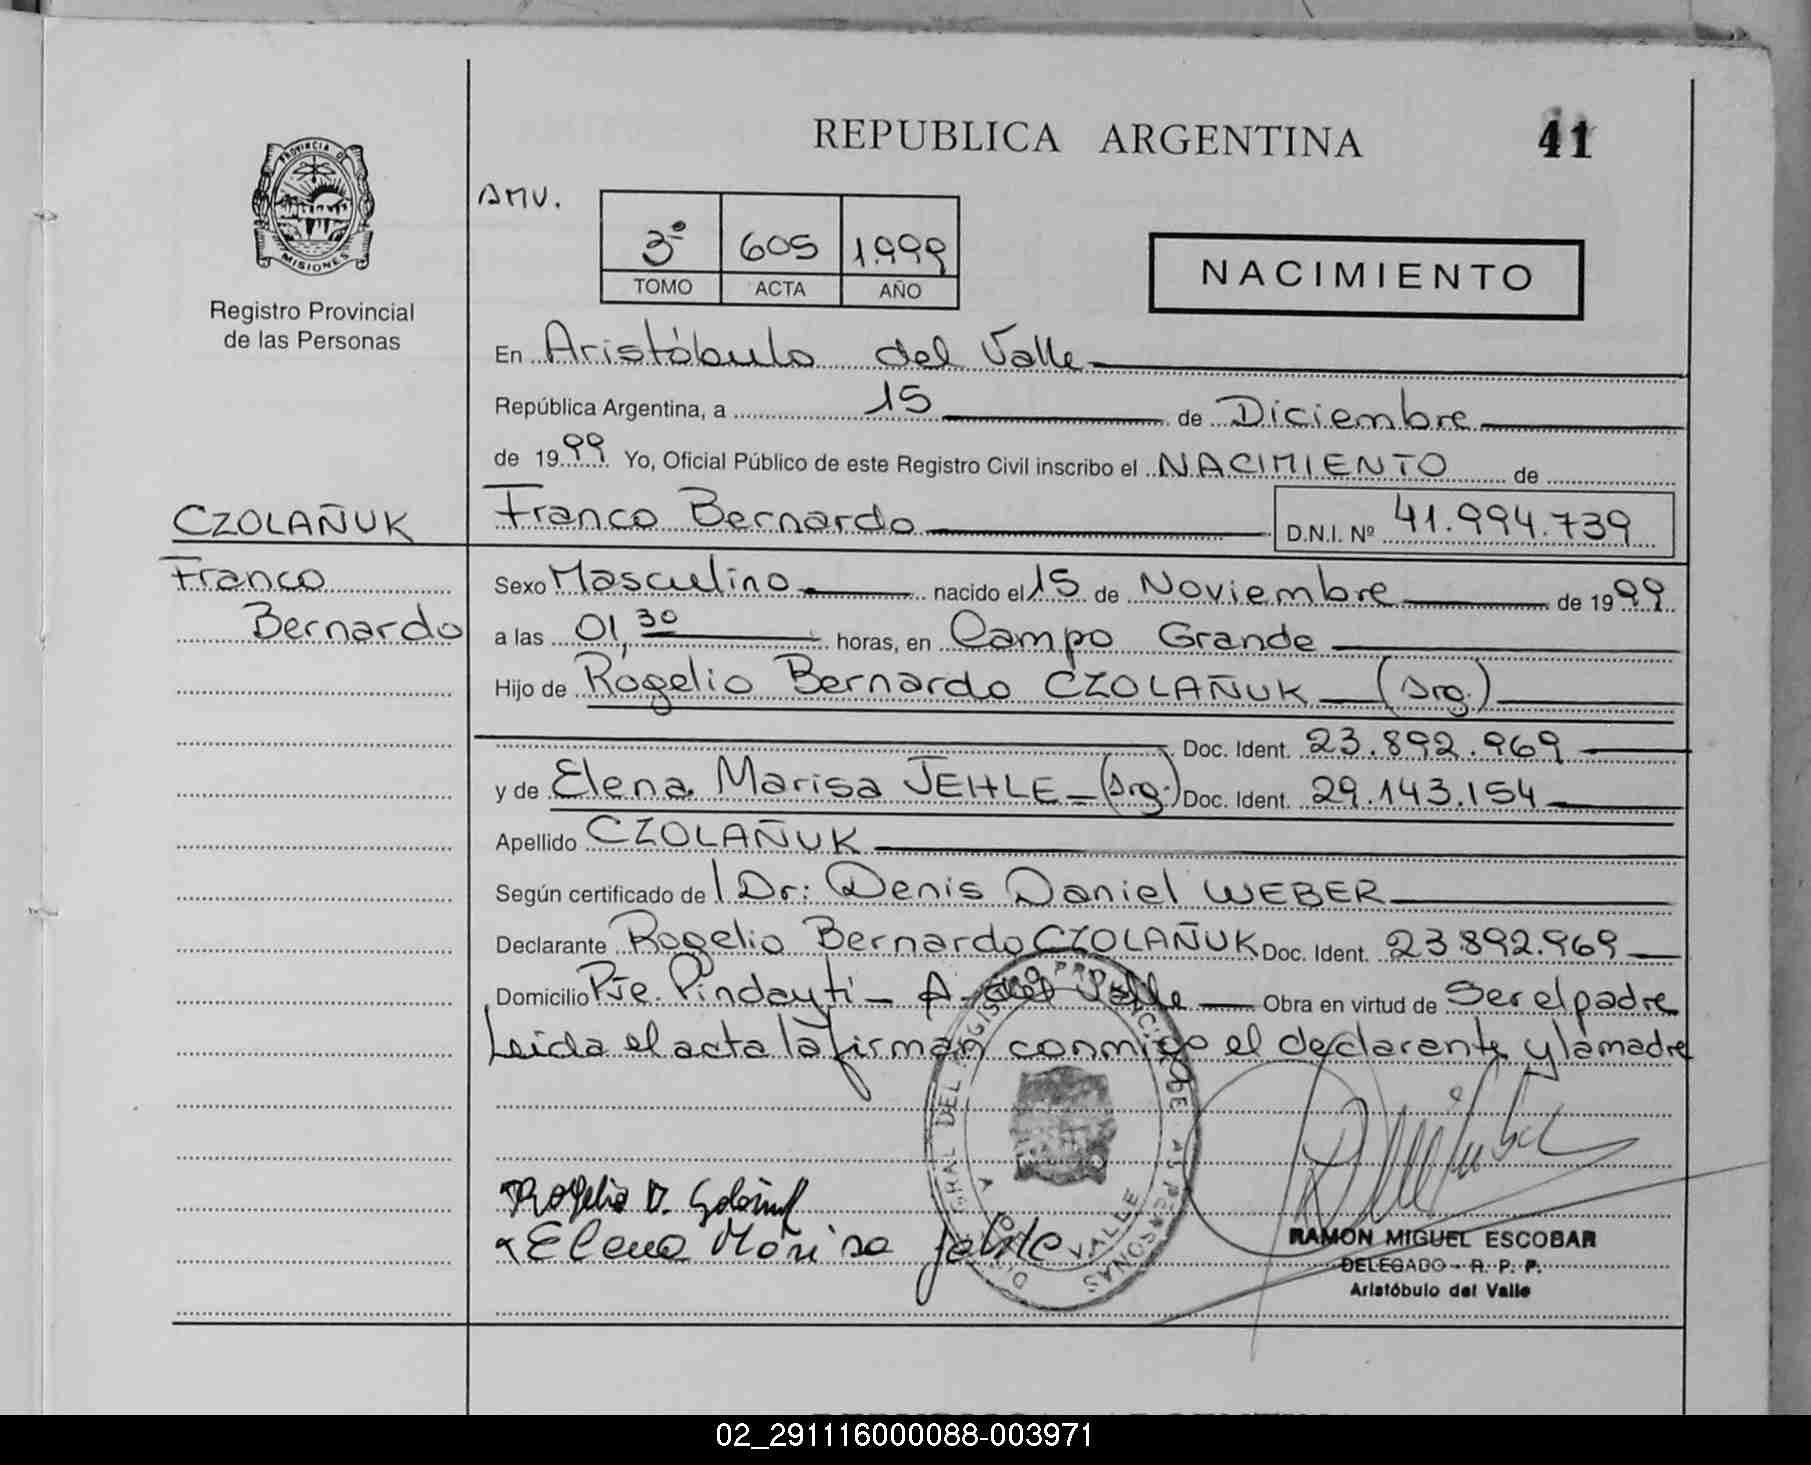 REPUBLICA ARGENTINA
41
PROVINCIA DE
MISIONES
Registro Provincial
de las Personas
AMV.
3º 605 1.999
TOMO ACTA AÑO
NACIMIENTO
En Aristóbulo del Valle
República Argentina, a 15 de Diciembre
de 1999 Yo, Oficial Público de este Registro Civil inscribo el NACIMIENTO de
CZOLAÑUK
Franco Bernardo D.N.I. Nº 41.994.739
Franco
Bernardo
Sexo Masculino nacido el 15 de Noviembre de 1999
a las 01,30 horas, en Campo Grande
Hijo de Rogelio Bernardo CZOLAÑUK (Arg.)
Doc. Ident. 23.892.969
y de Elena Marisa JEHLE (Arg.) Doc. Ident. 29.143.154
Apellido CZOLAÑUK
Según certificado de l Dr: Denis Daniel WEBER
Declarante Rogelio Bernardo CZOLAÑUK Doc. Ident. 23.892.969
Domicilio Pje. Pindayti - A. del Valle Obra en virtud de Ser el padre
Leida el acta la firman conmigo el declarante y la madre
Rogelio
Elena Marisa Jehle
RAMON MIGUEL ESCOBAR
DELEGADO - R. P. P.
Aristóbulo del Valle
02_291116000088-003971